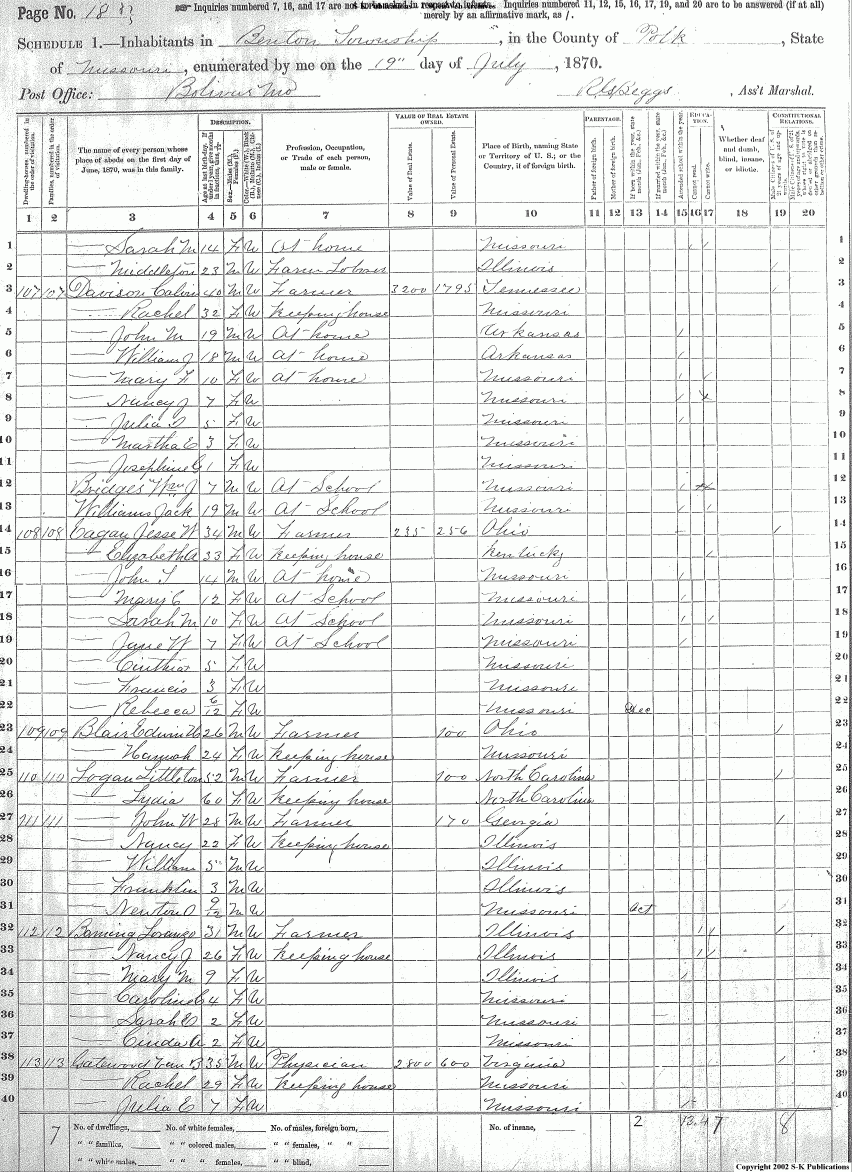 Page No. 18
Inquiries numbered 7, 16, and 17 are not to be asked in respect to infants. Inquiries numbered 11, 12, 15, 16, 17, 19, and 20 are to be answered (if at all)
merely by an affirmative mark, as /.
SCHEDULE 1.—Inhabitants in Benton Township, in the County of Polk, State
of Missouri, enumerated by me on the 19" day of July, 1870.
Post Office: Bolivar Mo Beggs, Ass't Marshal.
DESCRIPTION. VALUE OF REAL ESTATE OWNED. PARENTAGE. EDUCATION. CONSTITUTIONAL RELATIONS.
Dwelling-houses, numbered in the order of visitation. Families, numbered in the order of visitation. The name of every person whose place of abode on the first day of June, 1870, was in this family. Profession, Occupation, or Trade of each person, male or female. Value of Real Estate. Value of Personal Estate. Place of Birth, naming State or Territory of U. S.; or the Country, if of foreign birth. Father of foreign birth. Mother of foreign birth. Attended school within the year. Cannot read. Cannot write. Whether deaf and dumb, blind, insane, or idiotic.
1 2 3 4 5 6 7 8 9 10 11 12 13 14 15 16 17 18 19 20
1 — Sarah M 14 F W At home Missouri / / 1
2 — Middleton 23 M W Farm Laborer Illinois / 2
3 107 107 Davison Calvin 40 M W Farmer 3200 1795 Tennessee / 3
4 — Rachel 32 F W Keeping house Missouri 4
5 — John M 19 M W At home Arkansas / 5
6 — William J 18 M W At home Arkansas / 6
7 — Mary F 10 F W At home Missouri / / 7
8 — Nancy J 7 F W Missouri / 8
9 — Julia 5 F W Missouri / 9
10 — Martha E 3 F W Missouri 10
11 — Josephine 1 F W Missouri 11
12 Bridges Wm J 7 M W At School Missouri / 12
13 Williams Jack 19 M W At School Missouri / / 13
14 108 108 Cagan Jesse W 34 M W Farmer 235 256 Ohio / 14
15 — Elizabeth A 33 F W Keeping house Kentucky / 15
16 — John T 14 M W At home Missouri / 16
17 — Mary C 12 F W At School Missouri / 17
18 — Sarah M 10 F W At School Missouri / / 18
19 — Jane W 7 F W At School Missouri / 19
20 — Cinthia 5 F W Missouri 20
21 — Francis 3 F W Missouri 21
22 — Rebecca 6/12 F W Missouri Dec 22
23 109 109 Blair Edwin 26 M W Farmer 100 Ohio / 23
24 — Hannah 24 F W Keeping house Missouri 24
25 110 110 Logan Littleton 52 M W Farmer 100 North Carolina / 25
26 — Lydia 60 F W Keeping house North Carolina 26
27 111 111 — John W 28 M W Farmer 170 Georgia / 27
28 — Nancy 22 F W Keeping house Illinois 28
29 — William 5 M W Illinois 29
30 — Franklin 3 M W Illinois 30
31 — Newton O 9/12 M W Missouri Oct 31
32 112 112 Lorenzo 31 M W Farmer Illinois / / / 32
33 — Nancy J 26 F W Keeping house Illinois / / 33
34 — Mary M 9 F W Illinois / 34
35 — Caroline 4 F W Missouri 35
36 — Sarah E 2 F W Missouri 36
37 — Cinda A 2 F W Missouri 37
38 113 113 Gatewood 35 M W Physician 2800 600 Virginia / 38
39 — Rachel 29 F W Keeping house Missouri 39
40 — Julia E 7 F W Missouri / 40
7 No. of dwellings, No. of white females, No. of males, foreign born, No. of insane, 2 13 4 7 8
" " families, " " colored males, " " females, " "
" " white males, " " " females, " " blind,
Copyright 2002 S-K Publications